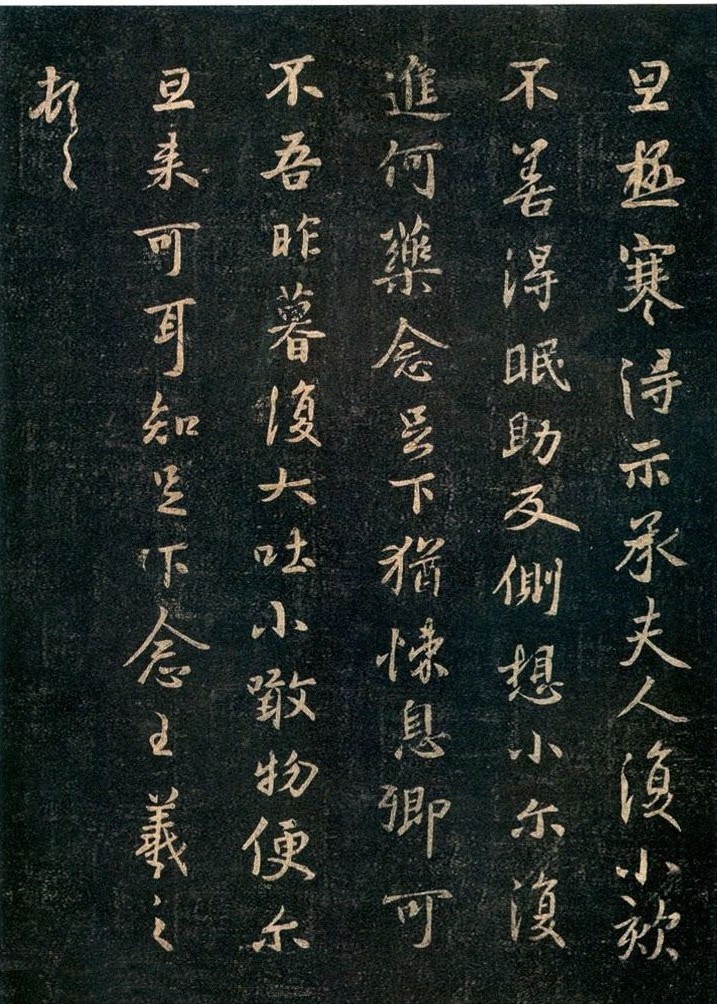 旦極寒得示承夫人復小欬
不善得眠助反側想小尔復
進何藥念足下猶悚息卿可
不吾昨暮復大吐小噉物便尔
旦来可耳知足下念王羲之
頓首